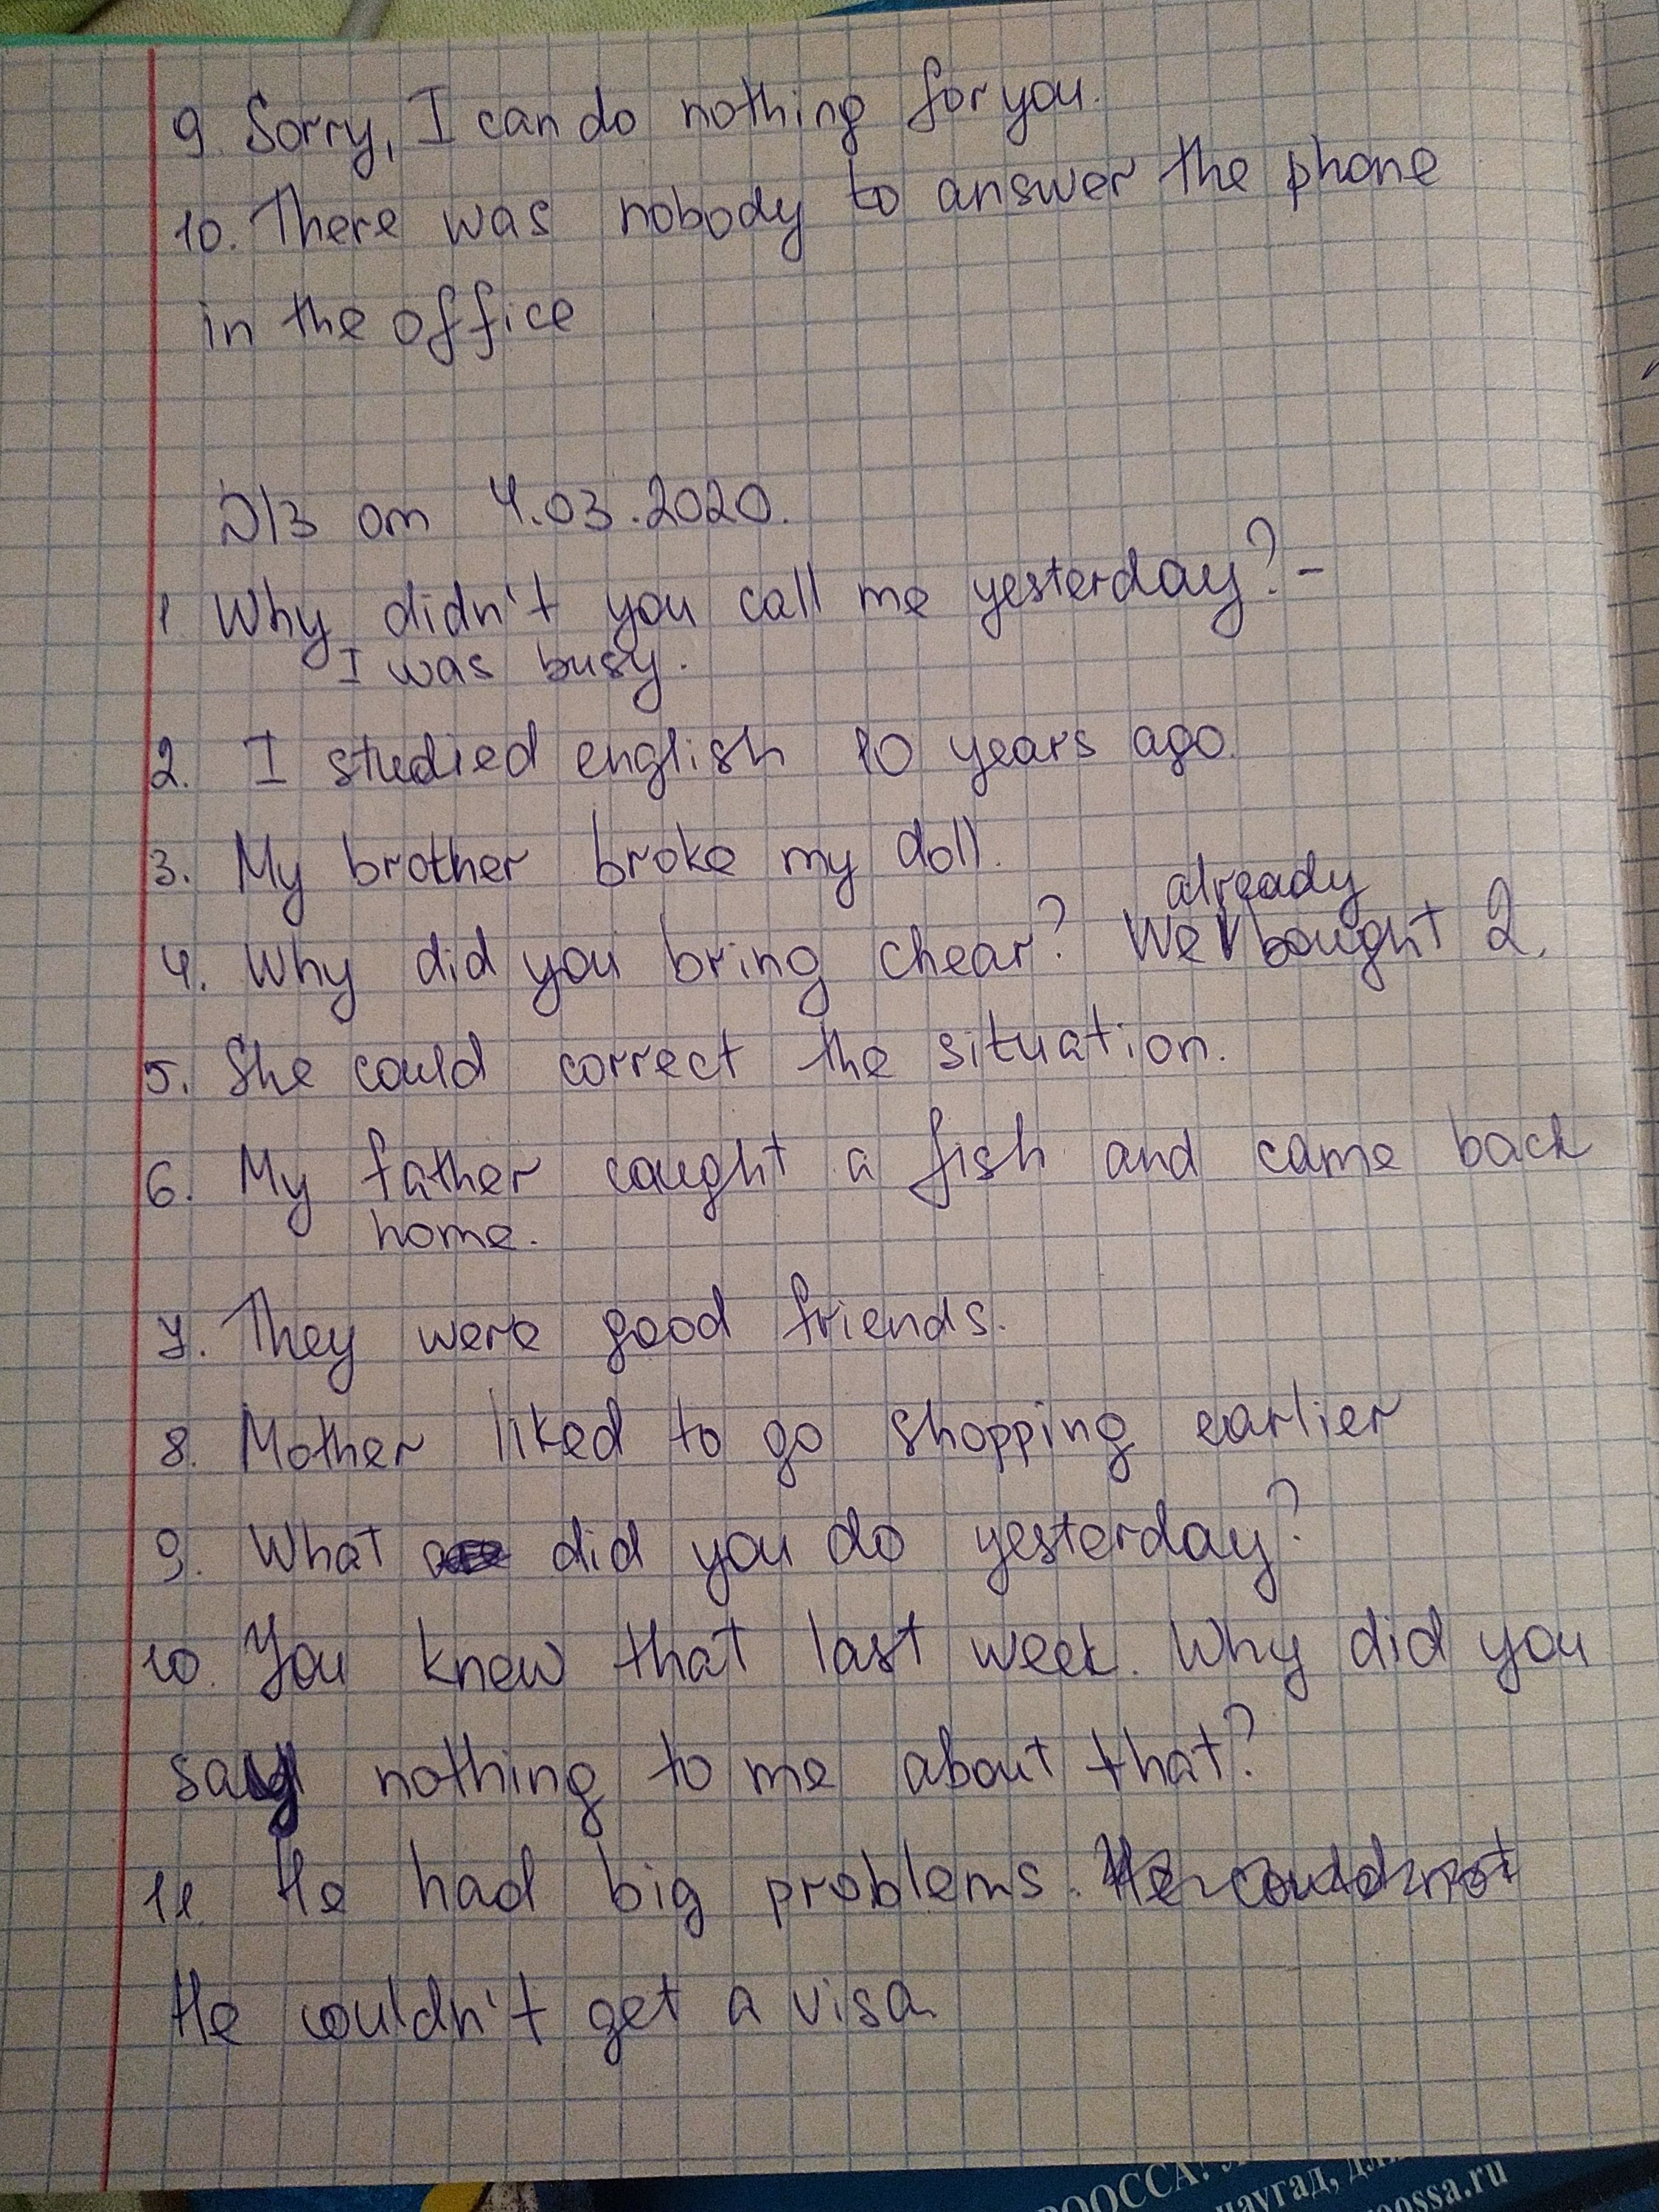 9. Sorry, I can do nothing for you.
10. There was nobody to answer the phone
in the office
Д/З от 4.03.2020.
1 Why didn't you call me yesterday? -
I was busy.
2. I studied english 10 years ago.
3. My brother broke my doll.
already
4. Why did you bring chear? We bought 2.
5. She could correct the situation.
6. My father caught a fish and came back
home.
7. They were good friends.
8. Mother liked to go shopping earlier
9. What did you do yesterday?
10. You knew that last week. Why did you
say nothing to me about that?
11. He had big problems. He could not
He couldn't get a visa
РООССА!
oossa.ru